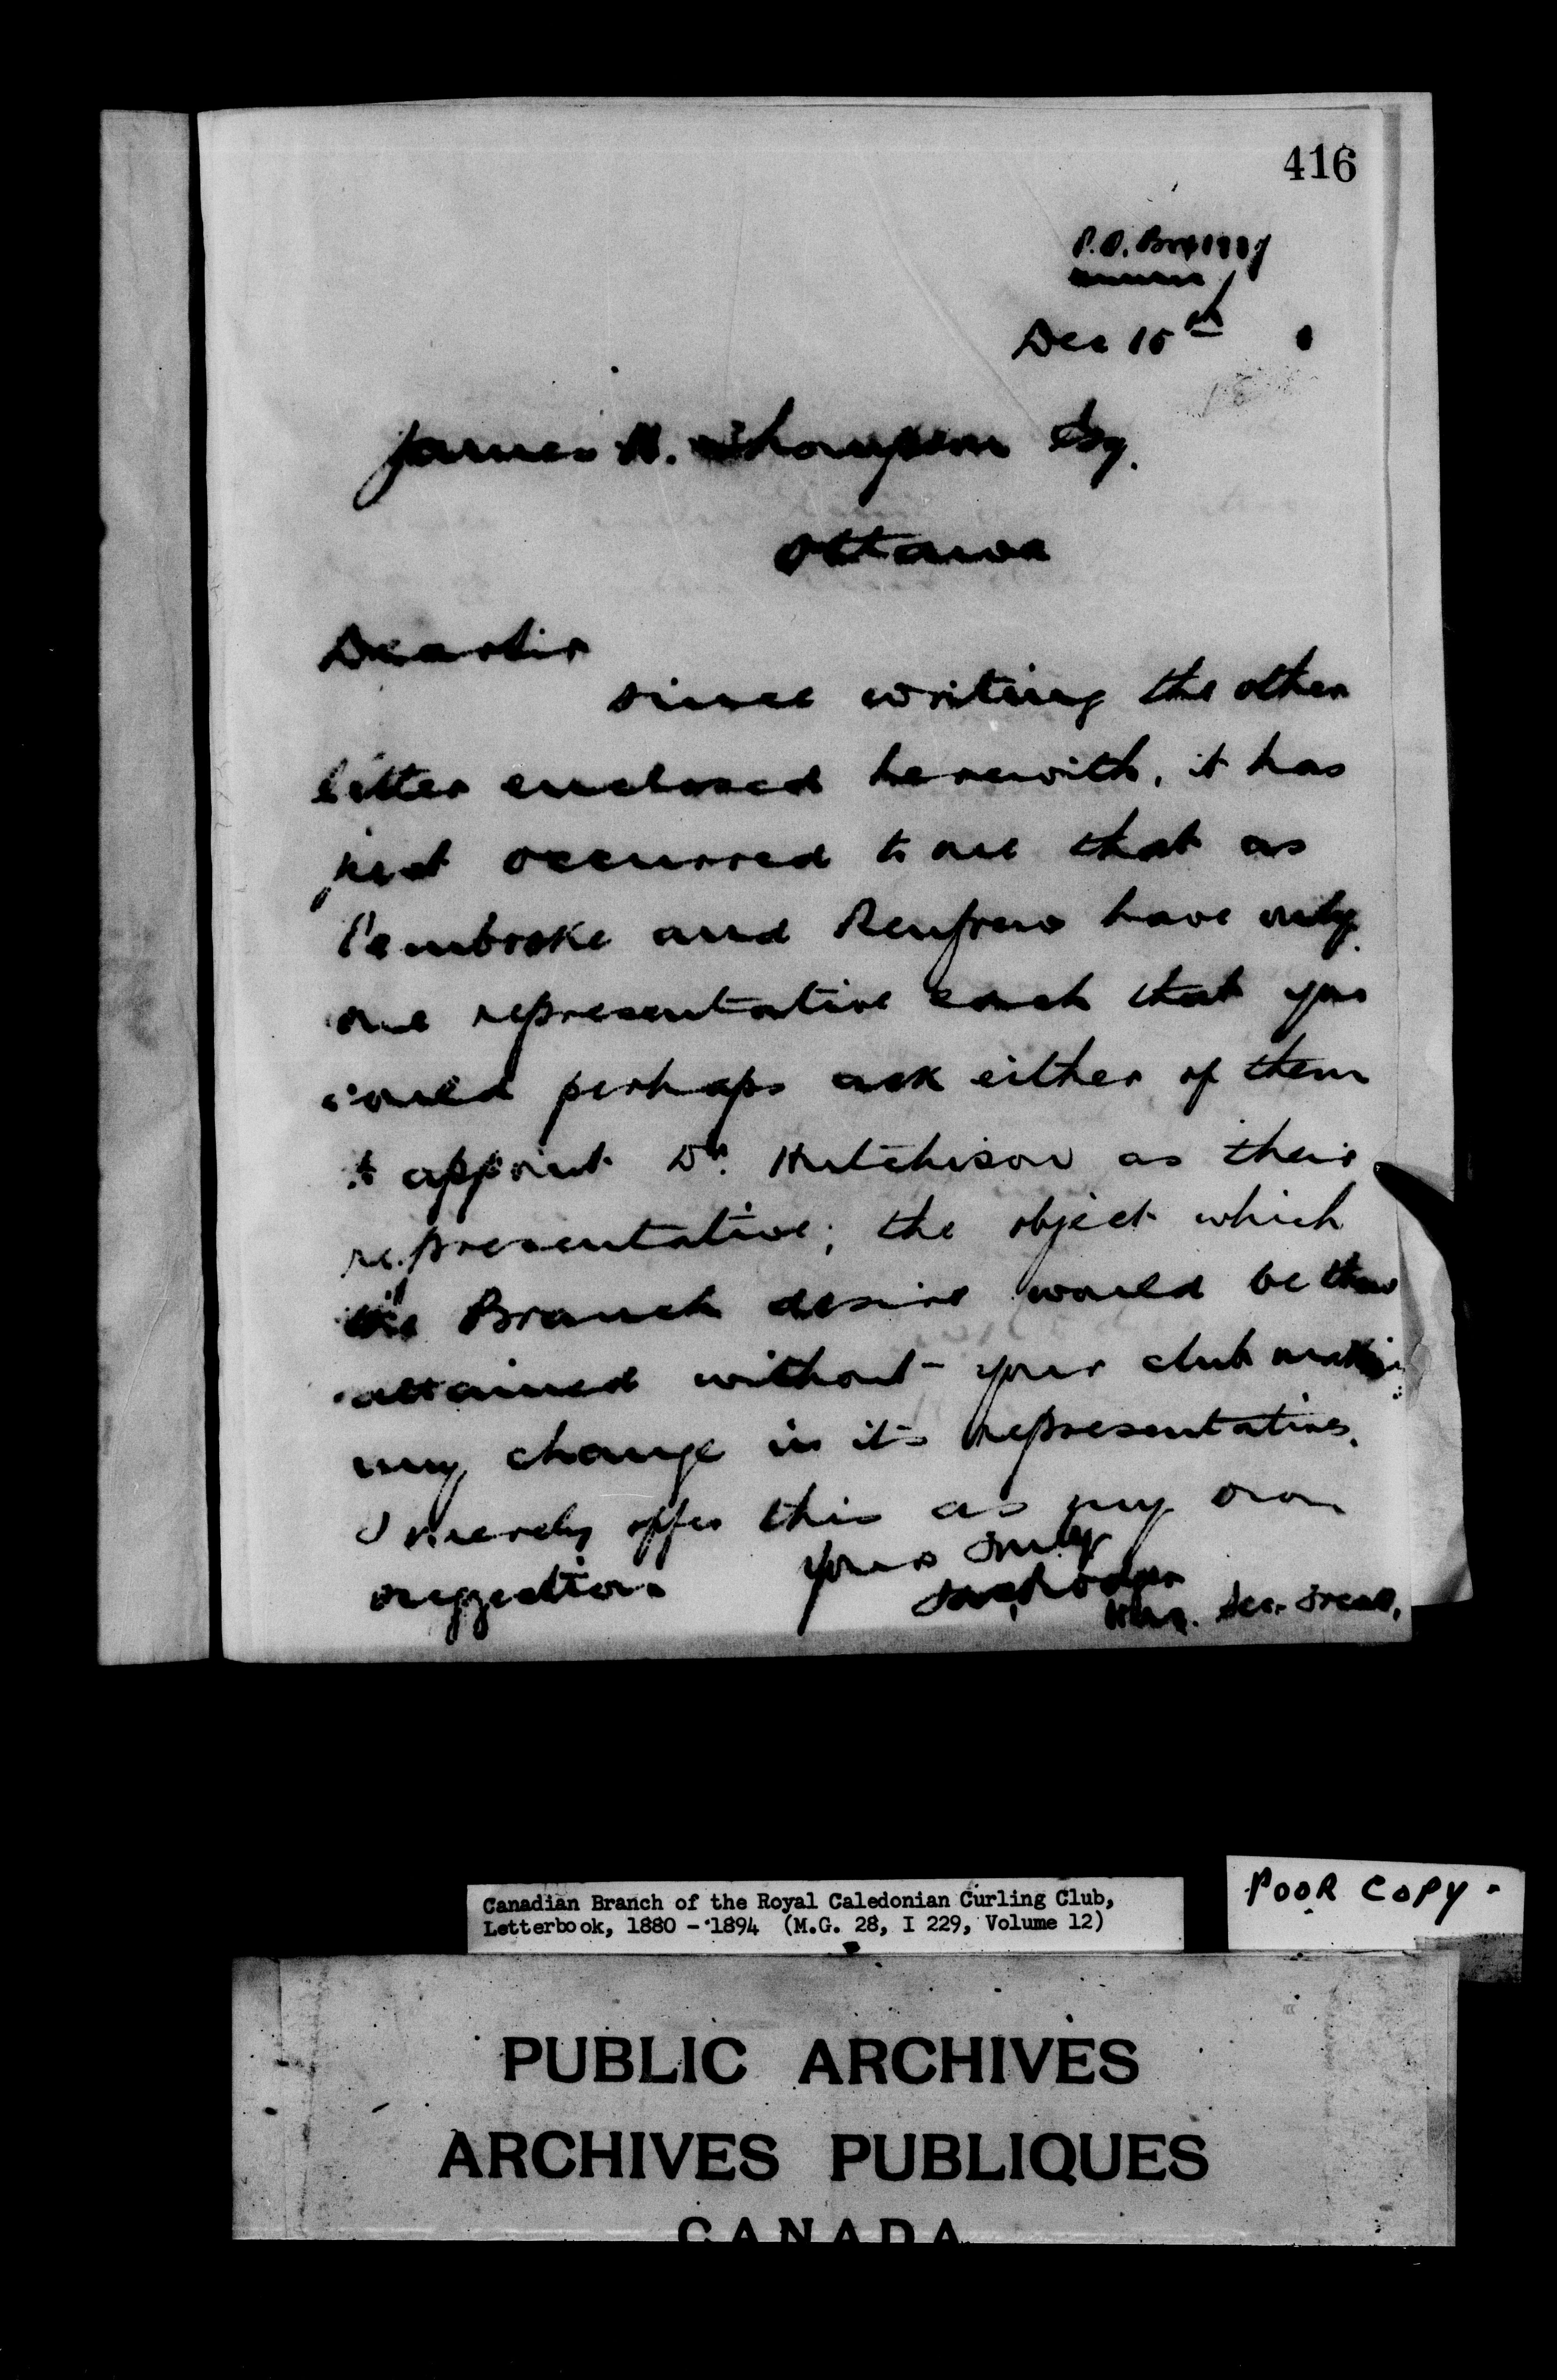 416
P.O. Box
Dec 15th
James H. Thompson Esq.
Ottawa
Dear Sir
since writing the other
letter enclosed herewith, it has
just occurred to me that as
Pembroke and Renfrew have only
one representative each that you
could perhaps ask either of them
to appoint Dr. Hutchison as their
representative; the object which
the Branch desire would be thus
attained without your club making
any change in its representatives.
I merely offer this as my own
suggestion.
Yours truly
Hon. Sec. Treas.
Canadian Branch of the Royal Caledonian Curling Club,
Letterbook, 1880 - 1894 (M.G. 28, I 229, Volume 12)
POOR COPY -
PUBLIC ARCHIVES
ARCHIVES PUBLIQUES
CANADA